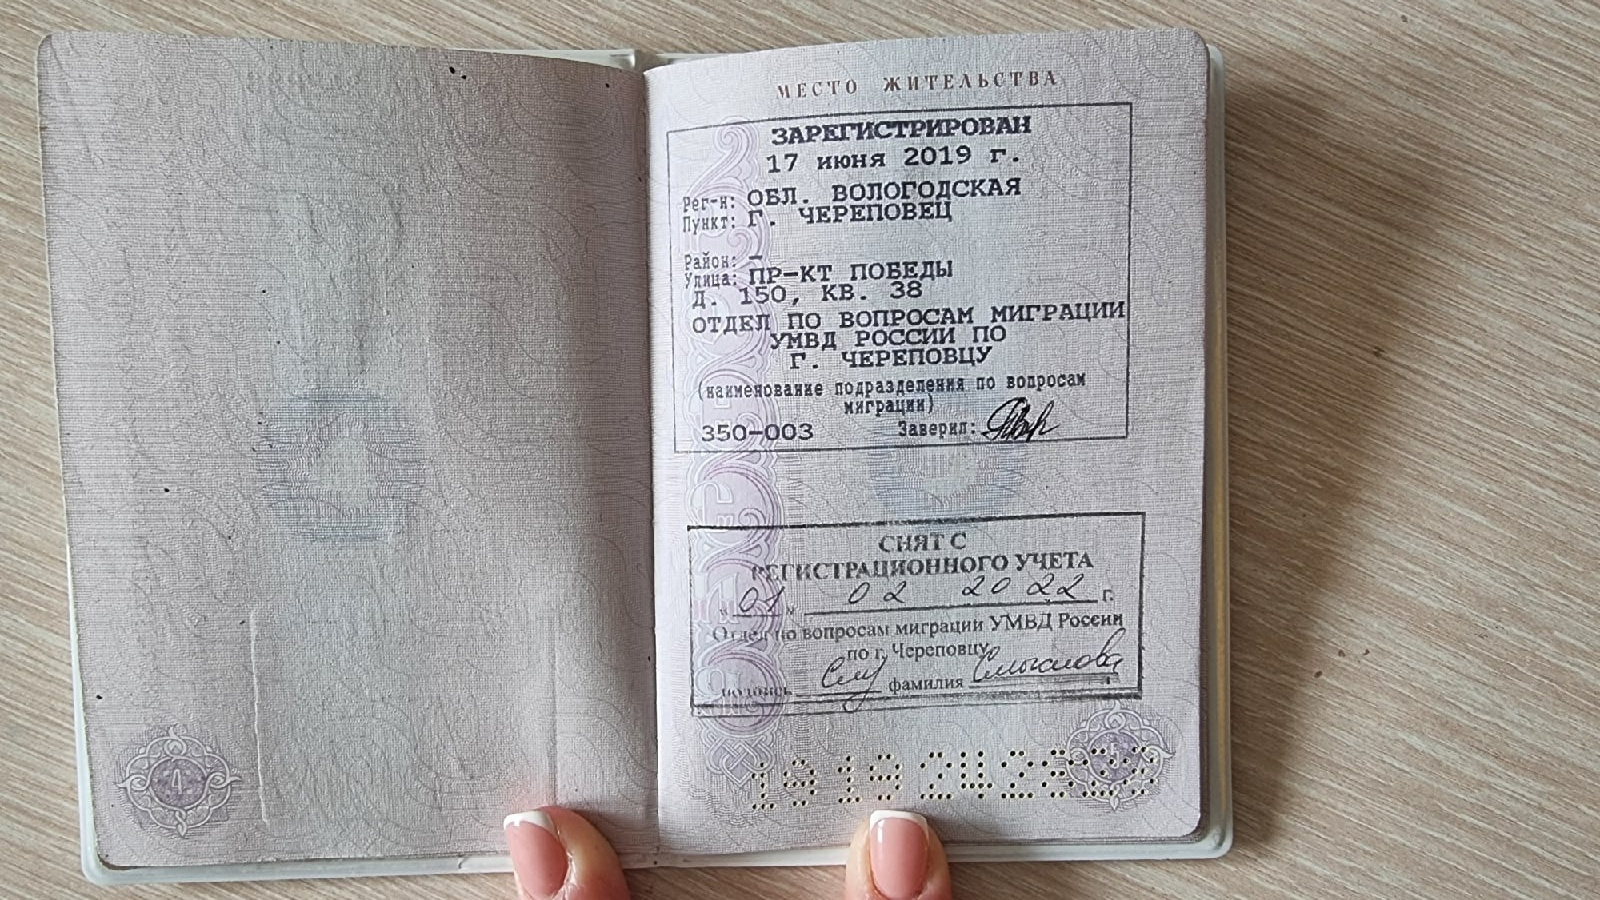 МЕСТО ЖИТЕЛЬСТВА
ЗАРЕГИСТРИРОВАН
17 июня 2019 г.
Рег-н: ОБЛ. ВОЛОГОДСКАЯ
Пункт: Г. ЧЕРЕПОВЕЦ
Район: –
Улица: ПР-КТ ПОБЕДЫ
Д. 150, КВ. 38
ОТДЕЛ ПО ВОПРОСАМ МИГРАЦИИ
УМВД РОССИИ ПО
Г. ЧЕРЕПОВЦУ
(наименование подразделения по вопросам
миграции)
350-003 Заверил:
СНЯТ С
РЕГИСТРАЦИОННОГО УЧЕТА
« 01 » 02 2022 г.
Отдел по вопросам миграции УМВД России
по г. Череповцу
подпись фамилия
4
5
19 19 242